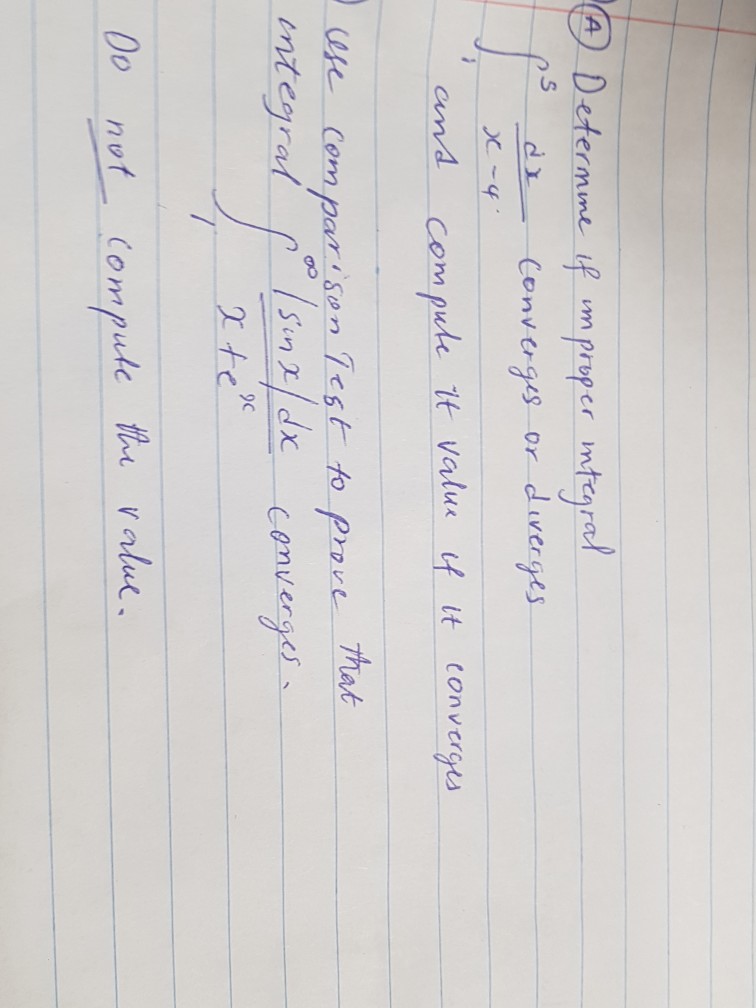 (A) Determine if improper integral
∫₁⁵ dx / x-4 converges or diverges
and compute it value if it converges
) Use Comparison Test to prove that
integral ∫₁^∞ |sin x| dx / x + eˣ converges.
Do not compute the value.